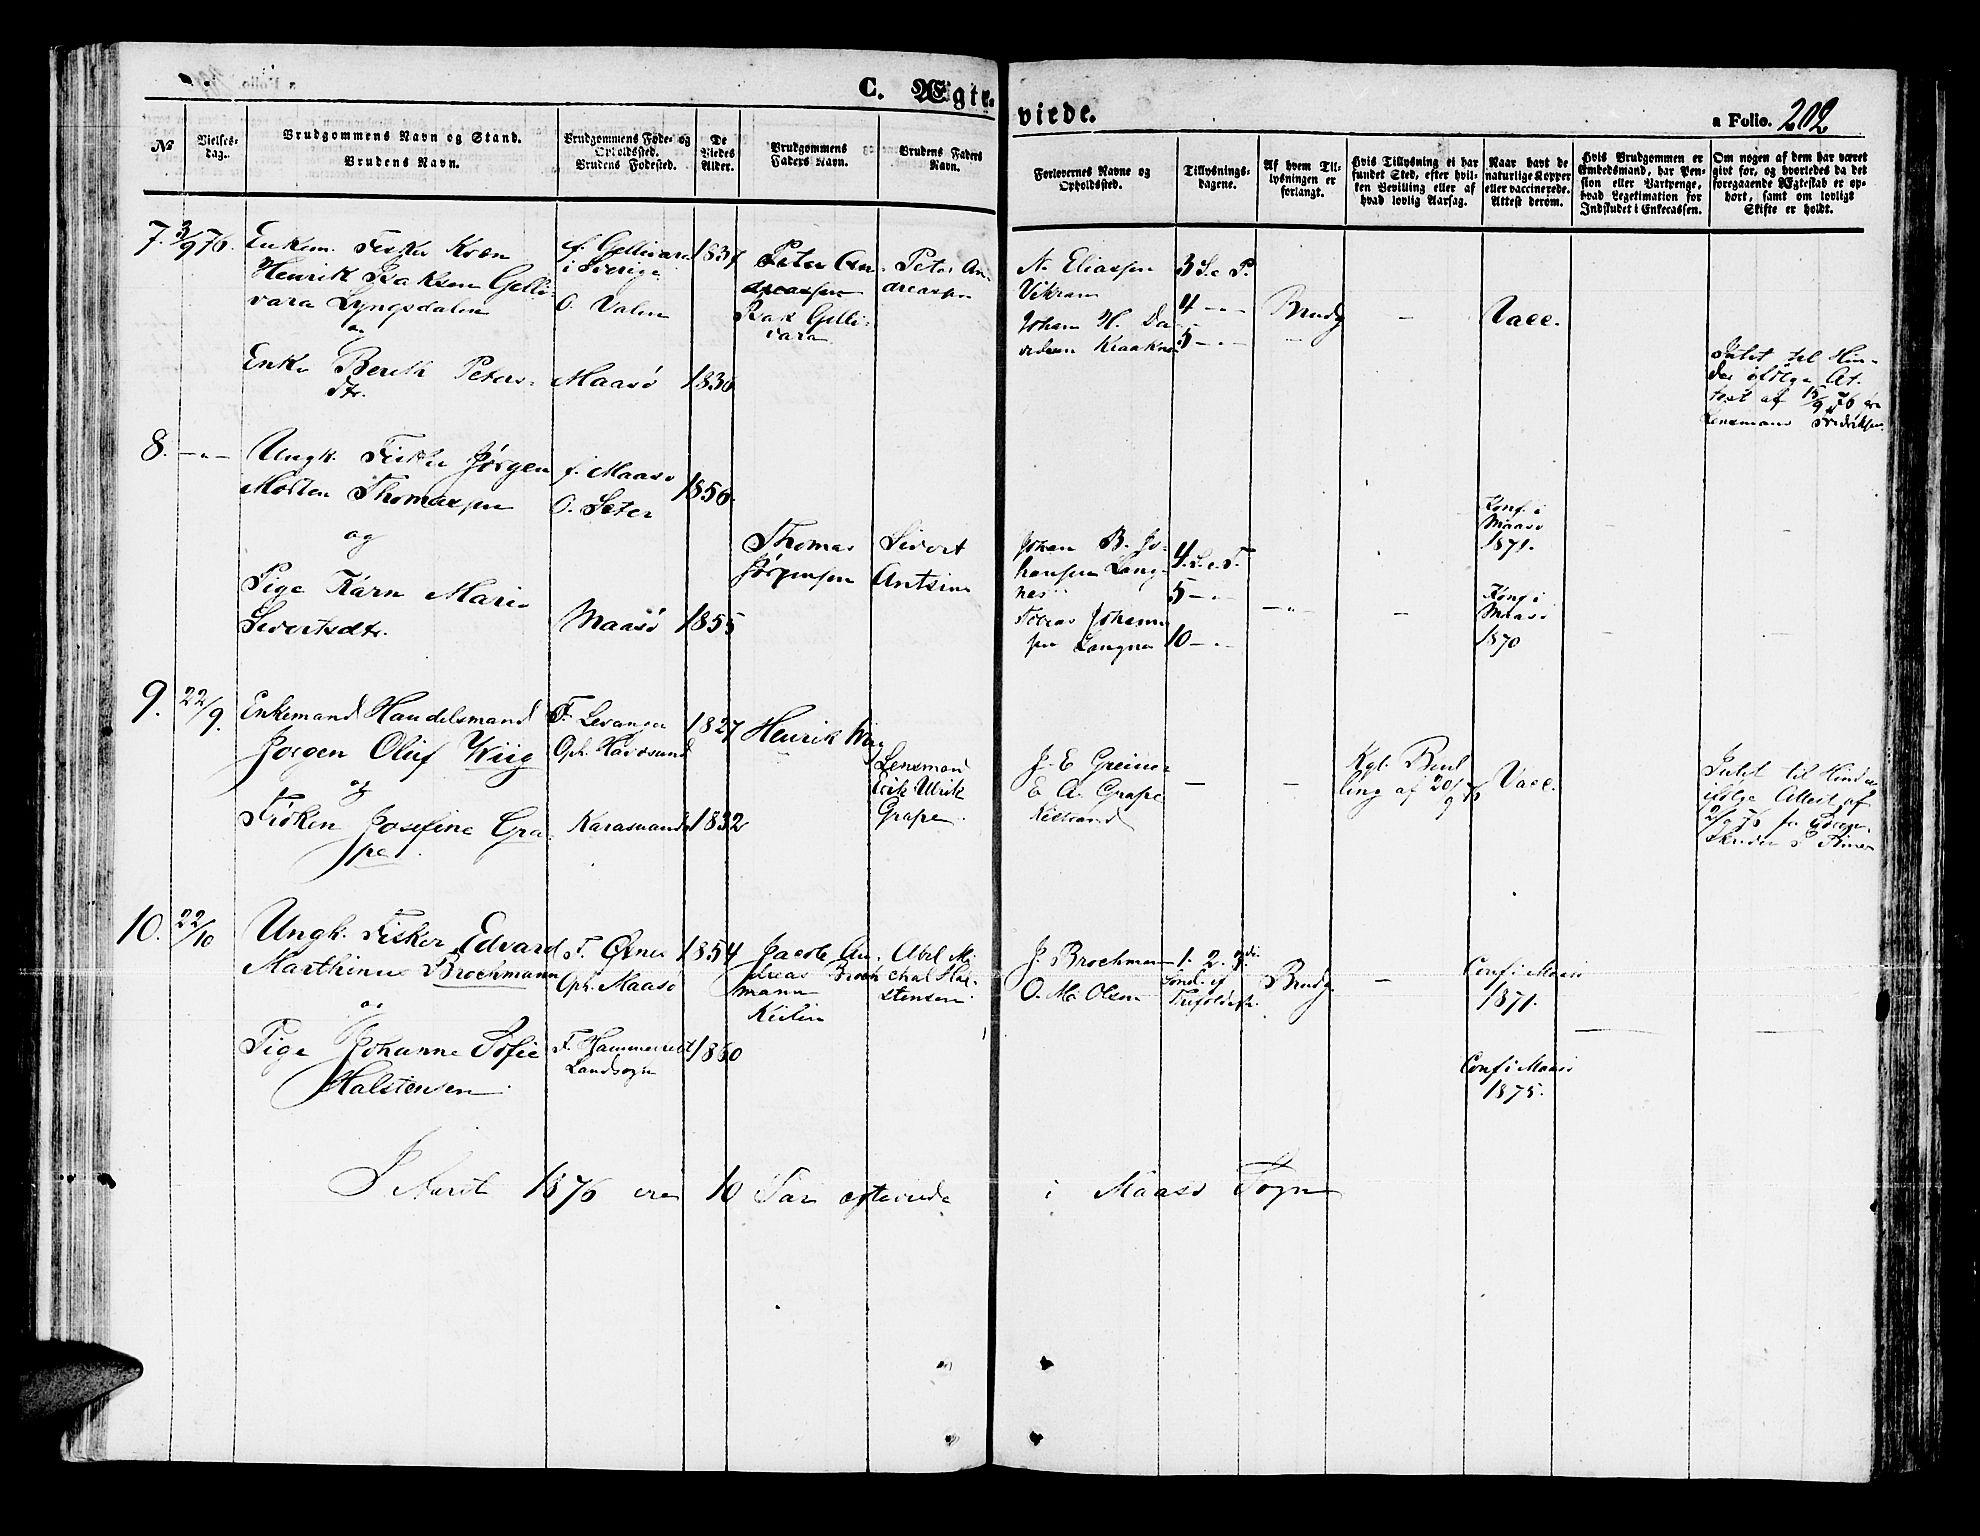 C. Ægte-
viede.
a Folio. 202
No
Vielses-
dag.
Brudgommens Navn og Stand.
Brudens Navn.
Brudgommens Føde- og
Opholdssted.
Brudens Fødested.
De
Viedes
Alder.
Brudgommens
Faders Navn.
Brudens Faders
Navn.
Forlovernes Navne og
Opholdssted.
Tillysnings-
dagene.
Af hvem Til-
lysningen er
forlangt.
Hvis Tillysning ei har
fundet Sted, efter hvil-
ken Bevilling eller af
hvad lovlig Aarsag.
Naar havt de
naturlige Kopper
eller vaccinerede.
Attest derom.
Hvis Brudgommen er
Embedsmand, har Pen-
sion eller Vartpenge,
hvad Legitimation for
Indskudet i Enkecassen.
Om nogen af dem har været
gift før, og hvorledes da det
foregaaende Ægteskab er op-
hørt, samt om lovligt
Skifte er holdt.
7. 3/9 76.
Enkem. Fisker Kvæn
Henrik Isaksen Gelli-
vara Lyngsdalen
og
Enke Berit Peters-
dtr.
f. Gellivara
i Sverige
O. Valen
Maasö
1837
1836
Peter An-
dreassen
Isax Gelli-
vara
Peter An-
dreassen
N. Eliassen
Vikran
Johan H. Da-
3 S. e P.
4 — " —
5 — " —
Brudg
—
Vacc.
Intet til Hin-
der ifölge At-
test af 15/9 76 fra
Lensmand Fredriksen
8. — " —
Ungk. Fisker Jörgen
Morten Thomassen
og
Pige Karn Marie
Sivertsdtr.
f. Maasö
O. Seter
Maasö
1850
1855
Thomas
Jörgensen
Sivert
Antsin
Johan B. Jo-
hansen Lang-
nes
Tobias Johanne-
sen Langnes
4. S. e. T.
5 — " —
10 — " —
— " —
—
Konf. i
Maasö
1871.
Konf i
Maasö
1870
9. 22/9.
Enkemand Handelsmand
Jörgen Oluf Wiig
og
Fröken Josefine Gra-
pe.
F. Levanger
Oph. Havösund
Karasuando
1827
1832
Henrik Wiig
Lensmand
Erik Ulrik
Grape.
J. E. Greiner
E. A. Grape
Kistrand
—
—
Kgl. Bevil
ling af 20/9 76
Vacc.
Intet til Hinder
ifölge Attest af
10. 22/10
Ungk. Fisker Edvard
Marthinus Brochmann
og
Pige Johanne Sofie
Halstensen
F. Öxnes
Oph. Maasö
F. Hammerfest
Landsogn
1854
1860
Jacob An-
dreas Broch
mann
Abel Mi
chal Hal-
stensen.
J. Brochmann
O. M. Olsen
1. 2. 3die
Sönd. ef
Brudg.
—
Conf i Maasö
1871.
Conf i Maasö
1875.
I Aaret 1876 ere 10 Par ægteviede i Maasö Sogn